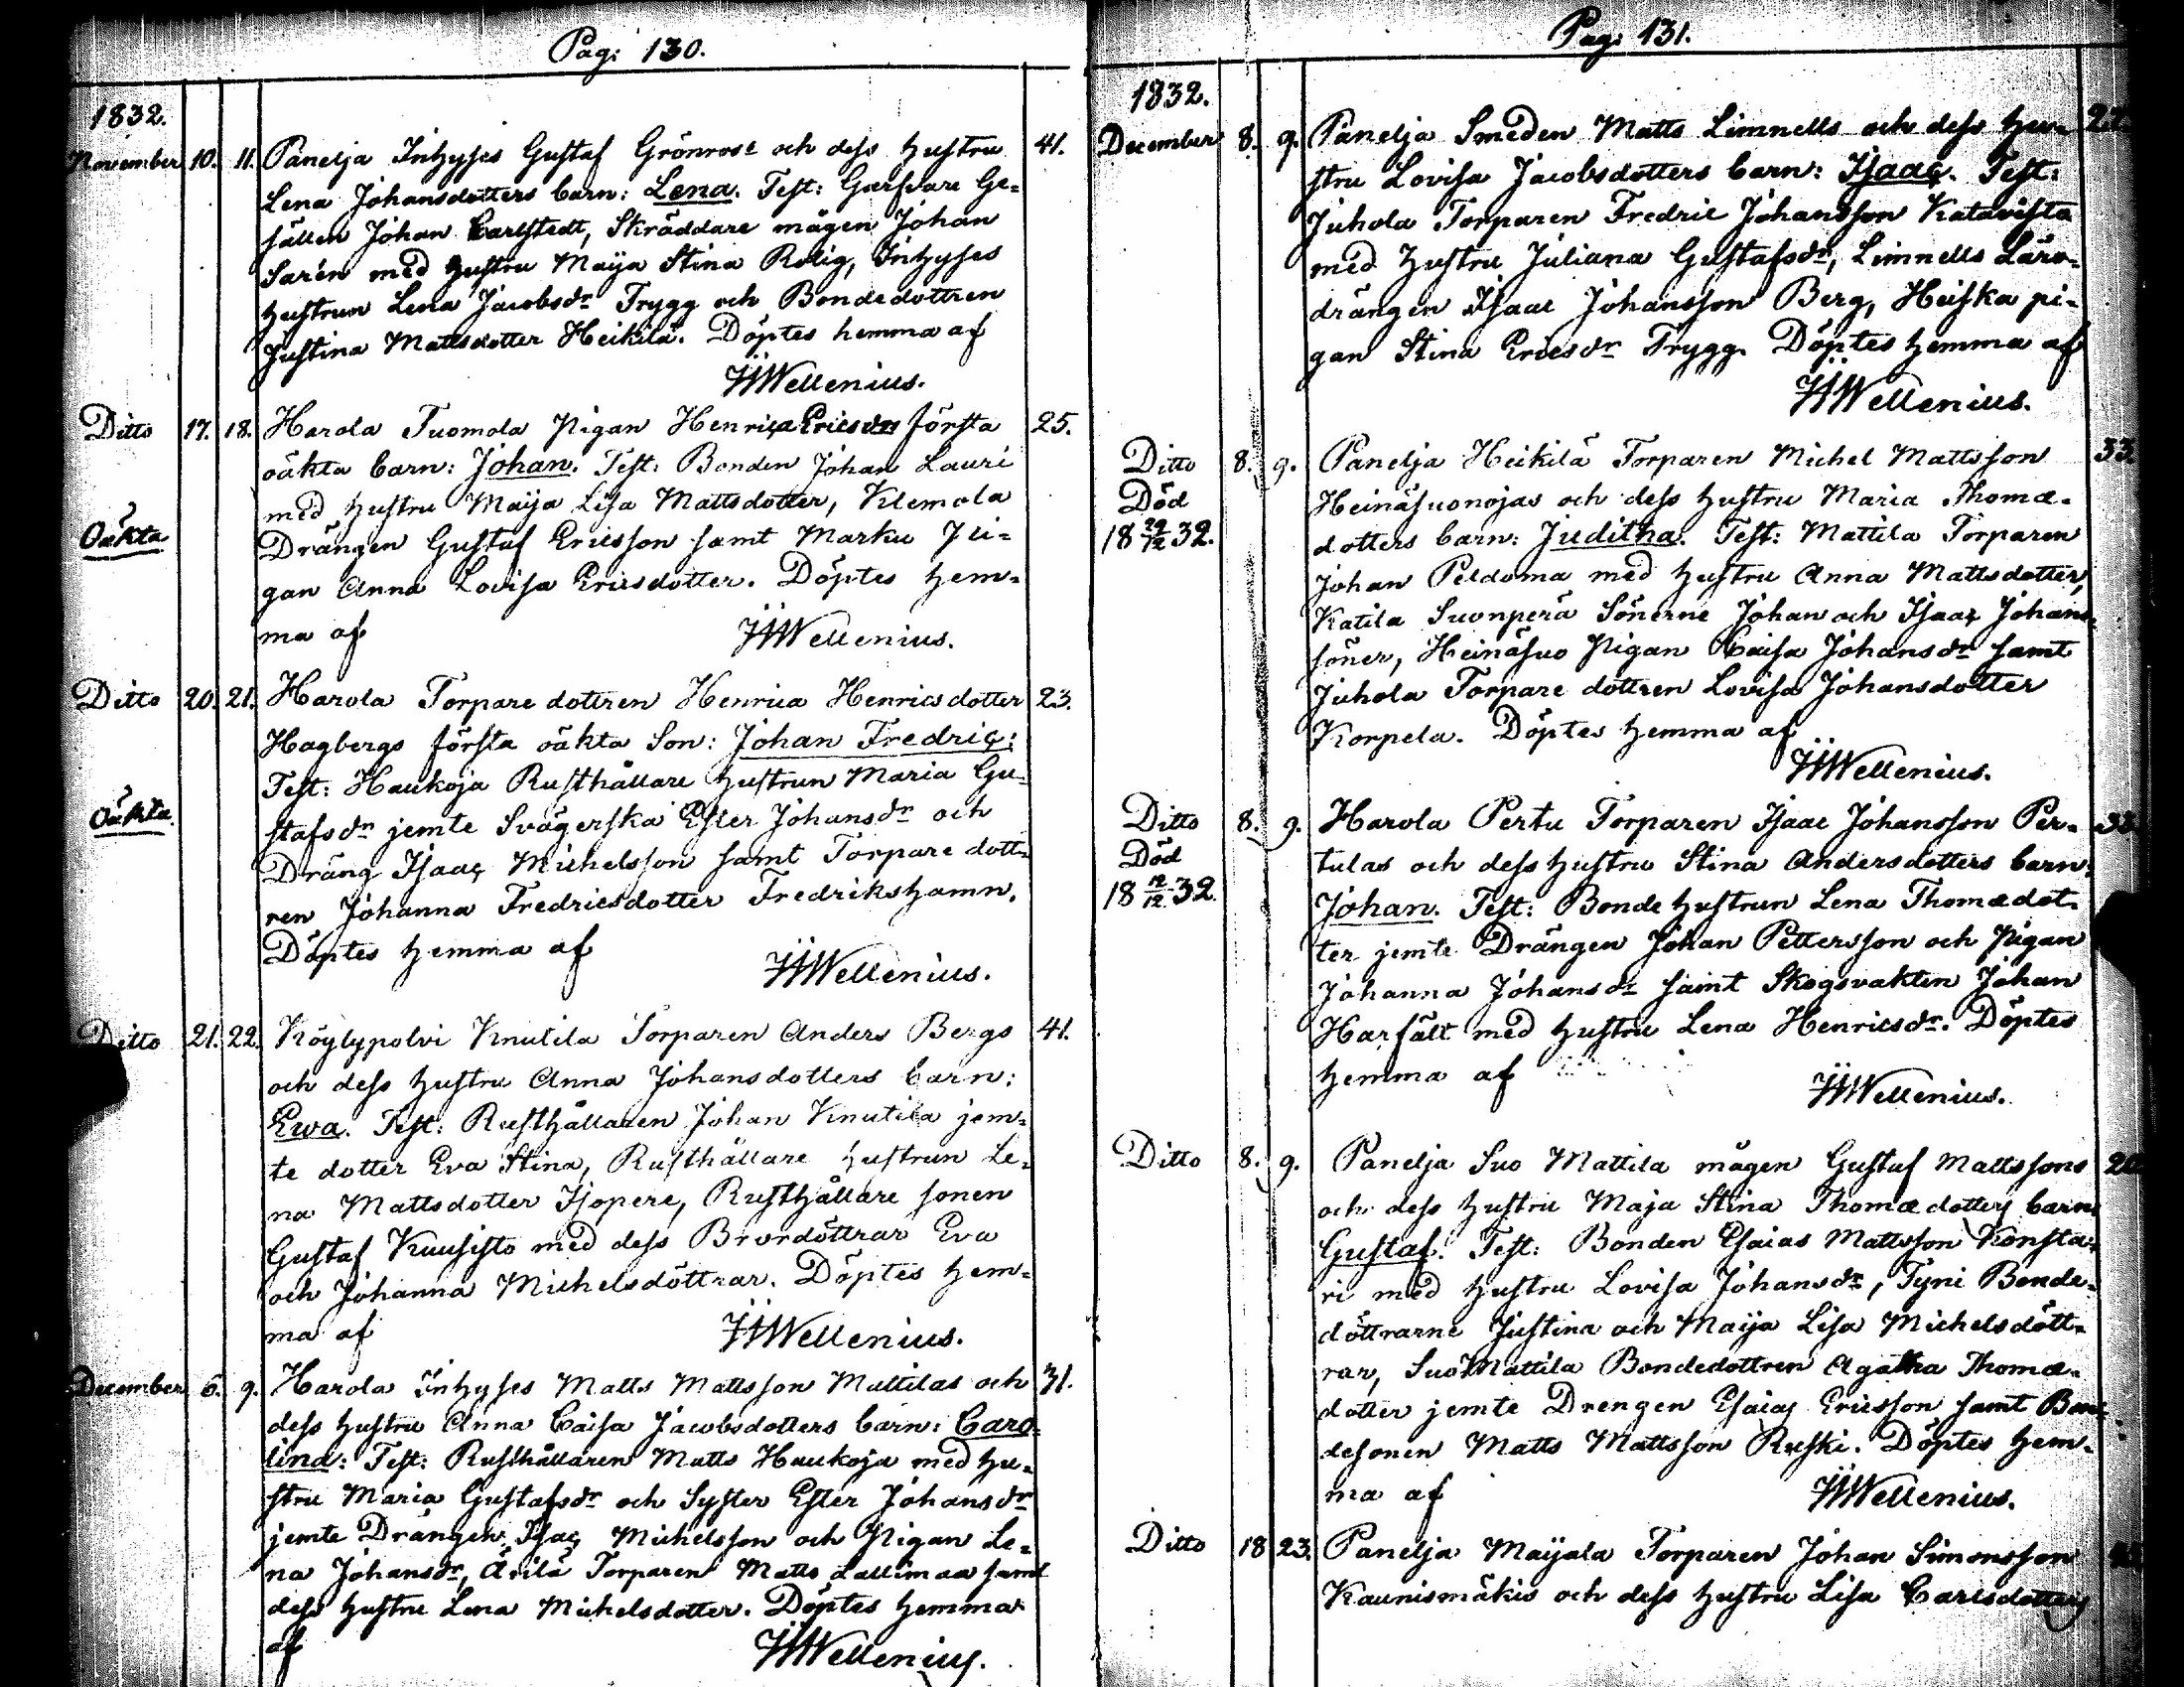 Pag: 130.
1832.
November 10. 11. Panelja Inhyses Gustaf Grönrose och dess hustru 41.
Lena Johansdotters barn: Lena. Test: Garfvare Ge-
sällen Johan Carlstedt, Skräddare mågen Johan
Sarén med hustru Maija Stina Rolig, Inhyses
hustrun Lena Jacobsdr Trygg och Bondedottren
Justina Mattsdotter Heikilä. Döptes hemma af
Wellenius.
Ditto 17. 18. Harola Tuomola Pigan Henrica Ericsdrs första 25.
oäkta barn: Johan. Test: Bonden Johan Lauri
med hustru Maija Lisa Mattsdotter, Klemola
Oäkta Drängen Gustaf Ericsson samt Marku Pi-
gan Anna Lovisa Ericsdotter. Döptes hem-
ma af
Wellenius.
Ditto 20. 21. Harola Torpare dottren Henrica Henricsdotter 23.
Hagbergs första oäkta Son: Johan Fredric:
Test: Haukoja Rusthållare hustrun Maria Gu-
Oäkta. stafsdr jemte Svägerska Ester Johansdr och
Dräng Isaac Michelsson samt Torpare dott-
ren Johanna Fredricsdotter Fredrikshamn.
Döptes hemma af
Wellenius.
Ditto 21. 22. Köylypolvi Knutila Torparen Anders Bergs 41.
och dess hustru Anna Johansdotters barn:
Ewa. Test: Rusthållaren Johan Knutila jem-
te dotter Eva Stina, Rusthållare hustrun Le-
na Mattsdotter Isopere, Rusthållare sonen
Gustaf Kuusisto med dess Brordöttrar Eva
och Johanna Michelsdöttrar. Döptes hem-
ma af
Wellenius.
December 6. 9. Harola Inhyses Matts Mattsson Mattilas och 31.
dess hustru Anna Caisa Jacobsdotters barn: Caro-
lina: Test: Rusthållaren Matts Haukoja med hu-
stru Maria Gustafsdr och Syster Ester Johansdr
jemte Drängen Isac Michelsson och Pigan Le-
na Johansdr, Torparen Matts Lallimaa samt
dess hustru Lena Michelsdotter. Döptes hemma
af
Wellenius.
Pag. 131.
1832.
December 8. 9. Panelja Smeden Matts Limnells och dess hu-
stru Lovisa Jacobsdotters barn: Isaac. Test:
Juhola Torparen Fredric Johansson Katavisto
med hustru Juliana Gustafsdr, Limnells Läro-
drängen Isaac Johansson Berg, Heiska pi-
gan Stina Ericsdr Trygg. Döptes hemma af
Wellenius.
Ditto 8. 9. Panelja Heikilä Torparen Michel Mattsson 33.
Död Heinäsuonojas och dess hustru Maria Thomæ-
18 29/12 32. dotters barn: Juditha. Test: Mattila Torparen
Johan Peldoma med hustru Anna Mattsdotter,
Katila Suonperä Sönerne Johan och Isaac Johans-
söner, Heinäsuo Pigan Caisa Johansdr samt
Juhola Torpare dottren Lovisa Johansdotter
Korpela. Döptes hemma af
Wellenius.
Ditto 8. 9. Harola Pertu Torparen Isaac Johansson Per-
Död tulas och dess hustru Stina Andersdotters barn:
18 12/12 32. Johan. Test: Bonde hustrun Lena Thomædot-
ter jemte Drängen Johan Pettersson och Pigan
Johanna Johansdr samt Skogsvakten Johan
Harfält med hustru Lena Henricsdr. Döptes
hemma af
Wellenius.
Ditto 8. 9. Panelja Suo Mattila mågen Gustaf Mattssons
och dess hustru Maja Stina Thomædotters barn:
Gustaf. Test: Bonden Esaias Mattsson Konsta-
ri med hustru Lovisa Johansdr, Tyni Bonde-
döttrarne Justina och Maija Lisa Michelsdött-
rar, Suo Mattila Bondedottren Agatha Thomæ-
dotter jemte Drengen Esaias Ericsson samt Bon-
desonen Matts Mattsson Ruski. Döptes hem-
ma af
Wellenius.
Ditto 18 23. Panelja Maijala Torparen Johan Simonsson
Kaunismäkis och dess hustru Lisa Carlsdotters